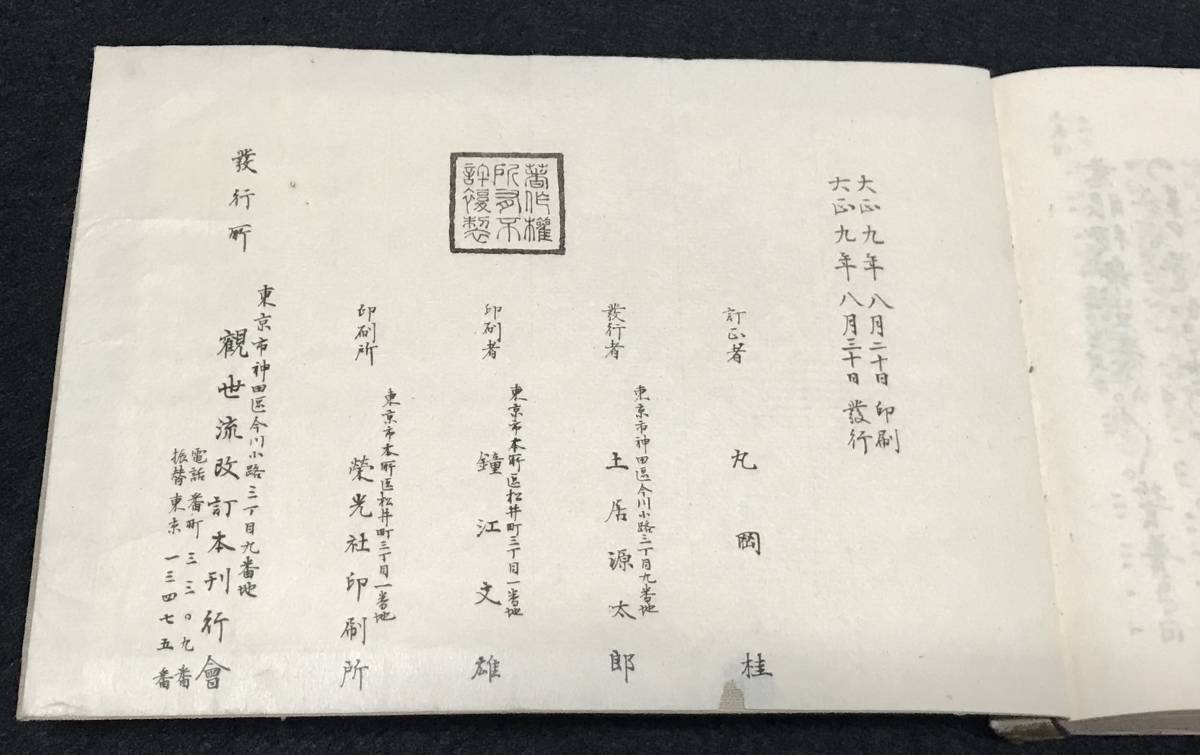 大正九年八月二十日印刷
大正九年八月三十日發行
訂正者
丸岡桂
發行者
東京市神田區今川小路三丁目九番地
土居源太郎
著作權
所有不
許複製
印刷者
東京市本所區松井町三丁目一番地
鐘江文雄
印刷所
東京市本所區松井町三丁目一番地
榮光社印刷所
發行所
東京市神田區今川小路三丁目九番地
觀世流改訂本刊行會
電話番町三三〇九番
振替東京一三四七五番